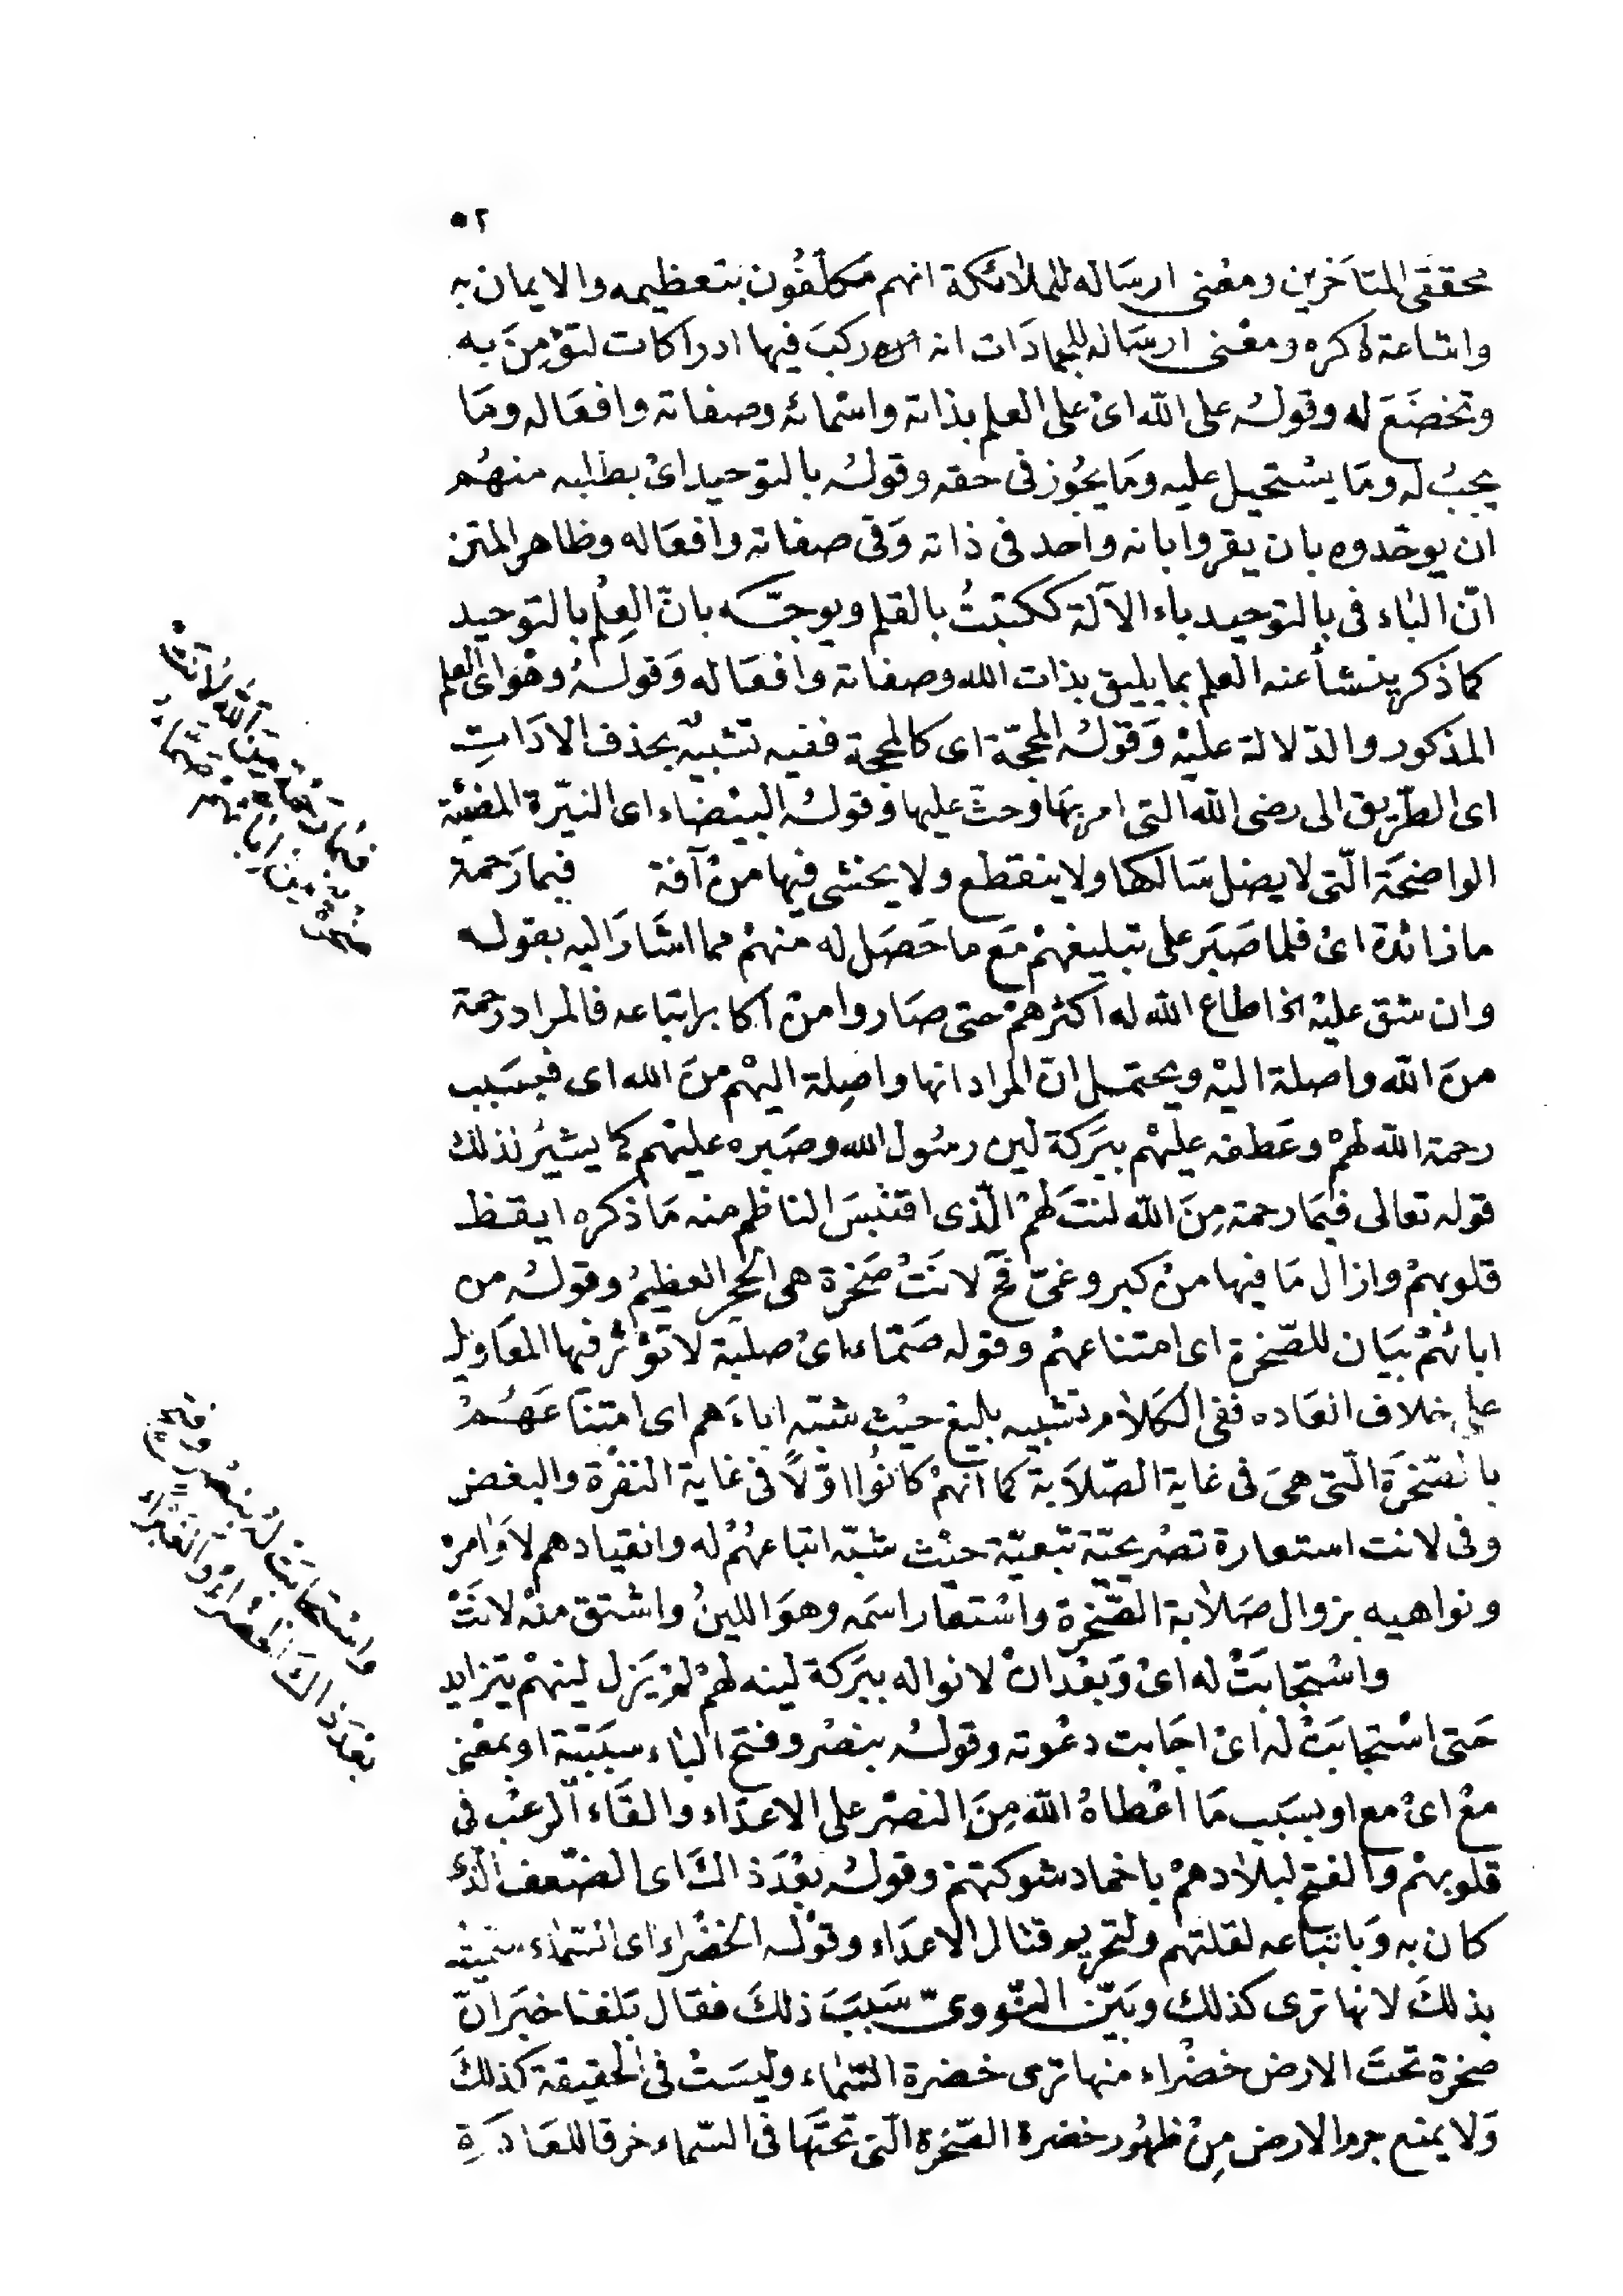 ٥٢
محققى المتأخرين ومعنى ارساله للملائكة انهم مكلفون بتعظيمه والايمان به
واشاعة ذكره ومعنى ارساله للجمادات انه ركب فيها ادراكات لتؤمن به
وتخضع له وقوله على الله اى على العلم بذاته واسمائه وصفاته وافعاله وما
يجب له وما يستحيل عليه وما يجوز فى حقه وقوله بالتوحيد اى بطلبه منهم
ان يوحدوه بان يقروا بانه واحد فى ذاته وفى صفاته وافعاله وظاهر المتن
انّ الباء فى بالتوحيد باء الآلة ككتبتُ بالقلم ويوجّه بانّ العِلْم بالتوحيد
كما ذكر ينشأ عنه العلم بما يليق بذات الله وصفاته وافعاله وقولهُ وهْو اى العلم
المذكور والدّلالة عليْه وَقولهُ المحجّة اى كالمحجة ففيه تشبيْه بحذف الاداتِ
اى الطّريق الى رضى الله التى امر بهَا وحثّ عليها وقولهُ البيْضاء اى النيّرة المضيْئة
الواضحَة الّتى لا يضل سَالكها ولا ينقطع ولا يخشى فيها منْ آفة فبما رَحمة
ما زائدة اىْ فلما صَبَر على تبليغهمْ مَع ما حَصَل له منهمْ مما اشَارَ اليه بقوله
وان شق عليْه اذا اطاع الله له اكثرهمْ حتى صَاروا منْ اكابر اتباعه فالمراد رحمة
منَ الله واصلة اليْه ويحتمل انّ المراد انها واصِلة اليهْم منَ الله اى فبسَبب
رحمة الله لهمْ وعَطفه عليْهم ببَركة لين رسُول الله وصَبره عليْهم كما يشيْر لذلك
قوله تعالى فبمَا رحمة مِنَ الله لنتَ لهمْ الّذى اقتبسَ الناظم منه مَا ذكره ايقظ
قلوبهمْ وازال مَا فيها منْ كبر وغىّ فحَ لانَتْ صَخرة هى الحجر العظيمْ وقولهُ من
ابائهُمْ بيَان للصّخرة اى امتناعهمْ وقوله صَمّاء اىْ صلبة لا تؤثر فيها المعَاويل
على خلاف العَاده ففى الكلام تشبيه بليغ حيْث شبّه اباءَهم اى امتنَاعَهُمْ
بالصّخرَة الّتى هىَ فى غاية الصّلاَبة كما انّهمْ كانُوا اوّلاً فى غاية النفرْة والبغض
وفى لانت استعارة تصْريحيّة تبَعيّة حيْث شبّه اتباعهُمْ له وانقيادهم لاَوامره
ونواهيه بزوال صَلاَبة الصّخرة واسْتعار اسمَه وهوَ اللينُ واشتق منْه لانَتْ
واسْتجابَتْ له اىْ وَبعْد انْ لانوا له ببَركة لينه لهمْ لمْ يَزل لينهمْ يتزايد
حَتى اسْتجابَتْ له اىْ اجَابت دعْوته وقولهُ بنصْر وفتح الباء سببيّة او بمعْنى
معْ اىْ مع او بسَبب مَا اعْطاهُ الله مِنَ النصْر على الاعدَاء والقَاء الرعْب فى
قلوبهمْ والفتح لبلاَدهمْ باخماد شوكتهمْ وقولهُ بعْدَ ذاكَ اى الضّعف الّذى
كان به وَباتبَاعه لقلتهم ولتحريم قتال الاعدَاء وقوْله الخضْراء اى السّماء سميْت
بذلكَ لانها ترى كذلك وبَيّن النّووىّ سَببَ ذلكَ فقال بَلغنا خبَر انّ
صخرة تحتَ الارض خضْراء منها ترى خضرة السّماء وليسَتْ فى الحقيقة كذلكَ
وَلا يمنع جرم الارض مِنْ ظهُور خضرة الصّخرة الّتى تحتَها فى السّماء خرقا للعَادَةِ
فبما رحمة من الله لانت
صخرة من ابائهم صماء
واسْتجابت له بنصر وفتح
بعْدَ ذاكَ الخضراء والغبْراء